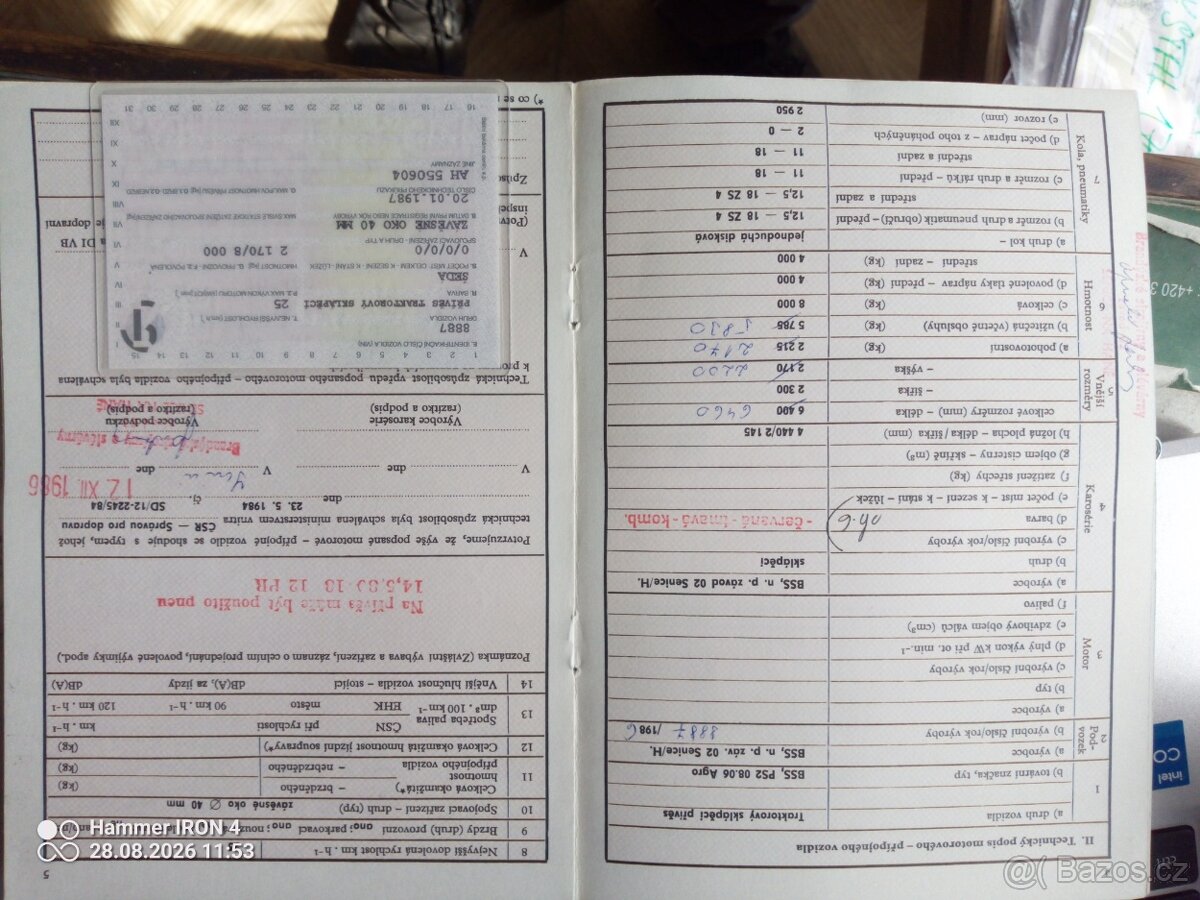 II. Technický popis motorového – přípojného vozidla
1
a) druh vozidla Traktorový sklápěcí přívěs
b) tovární značka, typ, BSS, PS2 08.06 Agro
2 Pod-
vozek
a) výrobce BSS, n. p. záv. 02 Senice/H.
b) výrobní číslo/rok výroby 8887 /1986
3
Motor
a) výrobce
b) typ
c) výrobní číslo/rok výroby
d) plný výkon kW při ot. min.-¹
e) zdvihový objem válců (cm³)
f) palivo
4
Karosérie
a) výrobce BSS, n. p. závod 02 Senice/H.
b) druh sklápěcí
c) výrobní číslo/rok výroby
d) barva - červená - tmavá - komb.
e) počet míst – k sezení – k stání – lůžek
f) zatížení střechy (kg)
g) objem cisterny – skříně (m³)
h) ložná plocha – délka/šířka (mm) 4 440/2 145
5
Vnější
rozměry
celkové rozměry (mm) – délka 6 400 6460
– šířka 2 300
– výška 2 170 2200
6
Hmotnost
a) pohotovostní (kg) 2 215 2170
b) užitečná (včetně obsluhy) (kg) 5 785 5830
c) celková (kg) 8 000
d) povolené tlaky náprav – přední (kg) 4 000
střední – zadní (kg) 4 000
7
Kola, pneumatiky
a) druh kol – jednoduchá disková
b) rozměr a druh pneumatik (obručí) – přední 12,5 — 18 ZS 4
střední a zadní 12,5 — 18 ZS 4
c) rozměr a druh ráfků – přední 11 — 18
střední a zadní 11 — 18
d) počet náprav – z toho poháněných 2 — 0
e) rozvor (mm) 2 950
5
8 Nejvyšší dovolená rychlost km . h⁻¹
9 Brzdy (druh) provozní ano; parkovací ano; nouz
10 Spojovací zařízení – druh (typ) závěsné oko ∅ 40 mm
11 Celková okamžitá*)
hmotnost
přípojného vozidla
– brzděného (kg)
– nebrzděného (kg)
12 Celková okamžitá hmotnost jízdní soupravy*) (kg)
13 Spotřeba paliva
dm³ . 100 km⁻¹
ČSN při rychlosti km . h⁻¹
EHK město 90 km . h⁻¹ 120 km . h⁻¹
14 Vnější hlučnost vozidla – stojící dB(A), za jízdy dB(A)
Poznámka (Zvláštní výbava a zařízení, záznam o celním projednání, povolené výjimky apod.)
Na přívěs může být použito pneu
14,5/80-18 12 PR
Potvrzujeme, že výše popsané motorové – přípojné vozidlo se shoduje s typem, jehož
technická způsobilost byla schválena ministerstvem vnitra ČSR — Správou pro dopravu
dne 23. 5. 1984 čj. SD/12-2245/84
V dne V dne 17. XII. 1986
Výrobce karosérie
(razítko a podpis)
Výrobce podvozku
(razítko a podpis)
Brandýské strojírny a slévárny
Technická způsobilost vpředu popsaného motorového – přípojného vozidla byla schválena
k prov
15 14 13 12 11 10 9 8 7 6 5 4 3 2 1
E. IDENTIFIKAČNÍ ČÍSLO VOZIDLA (VIN)
8887
DRUH VOZIDLA T. NEJVYŠŠÍ RYCHLOST [km/h]
PŘÍVĚS TRAKTOROVÝ SKLÁPĚCÍ 25
R. BARVA P.2. MAX. VÝKON MOTORU
ŠEDÁ
S. POČET MÍST CELKEM- K SEZENÍ - K STÁNÍ -LŮŽEK HMOTNOST [kg] G. PROVOZNÍ - F.2. POVOLENÁ
0/0/0/0 2 170/8 000
SPOJOVACÍ ZAŘÍZENÍ - DRUH A TYP
ZÁVĚSNÉ OKO 40 MM
B. DATUM PRVNÍ REGISTRACE NEBO ROK VÝROBY
20.01.1987
ČÍSLO TECHNICKÉHO PRŮKAZU
AH 550604
JINÉ ZÁZNAMY
I II III IV V VI VII VIII IX X XI XII
16 17 18 19 20 21 22 23 24 25 26 27 28 29 30 31
V a DI VB
(Potv je dopravní
inspek
Způsob
*) co se n
+420 3
intel
CO
Hammer IRON 4
28.08.2026 11:53
@( Bazos.cz